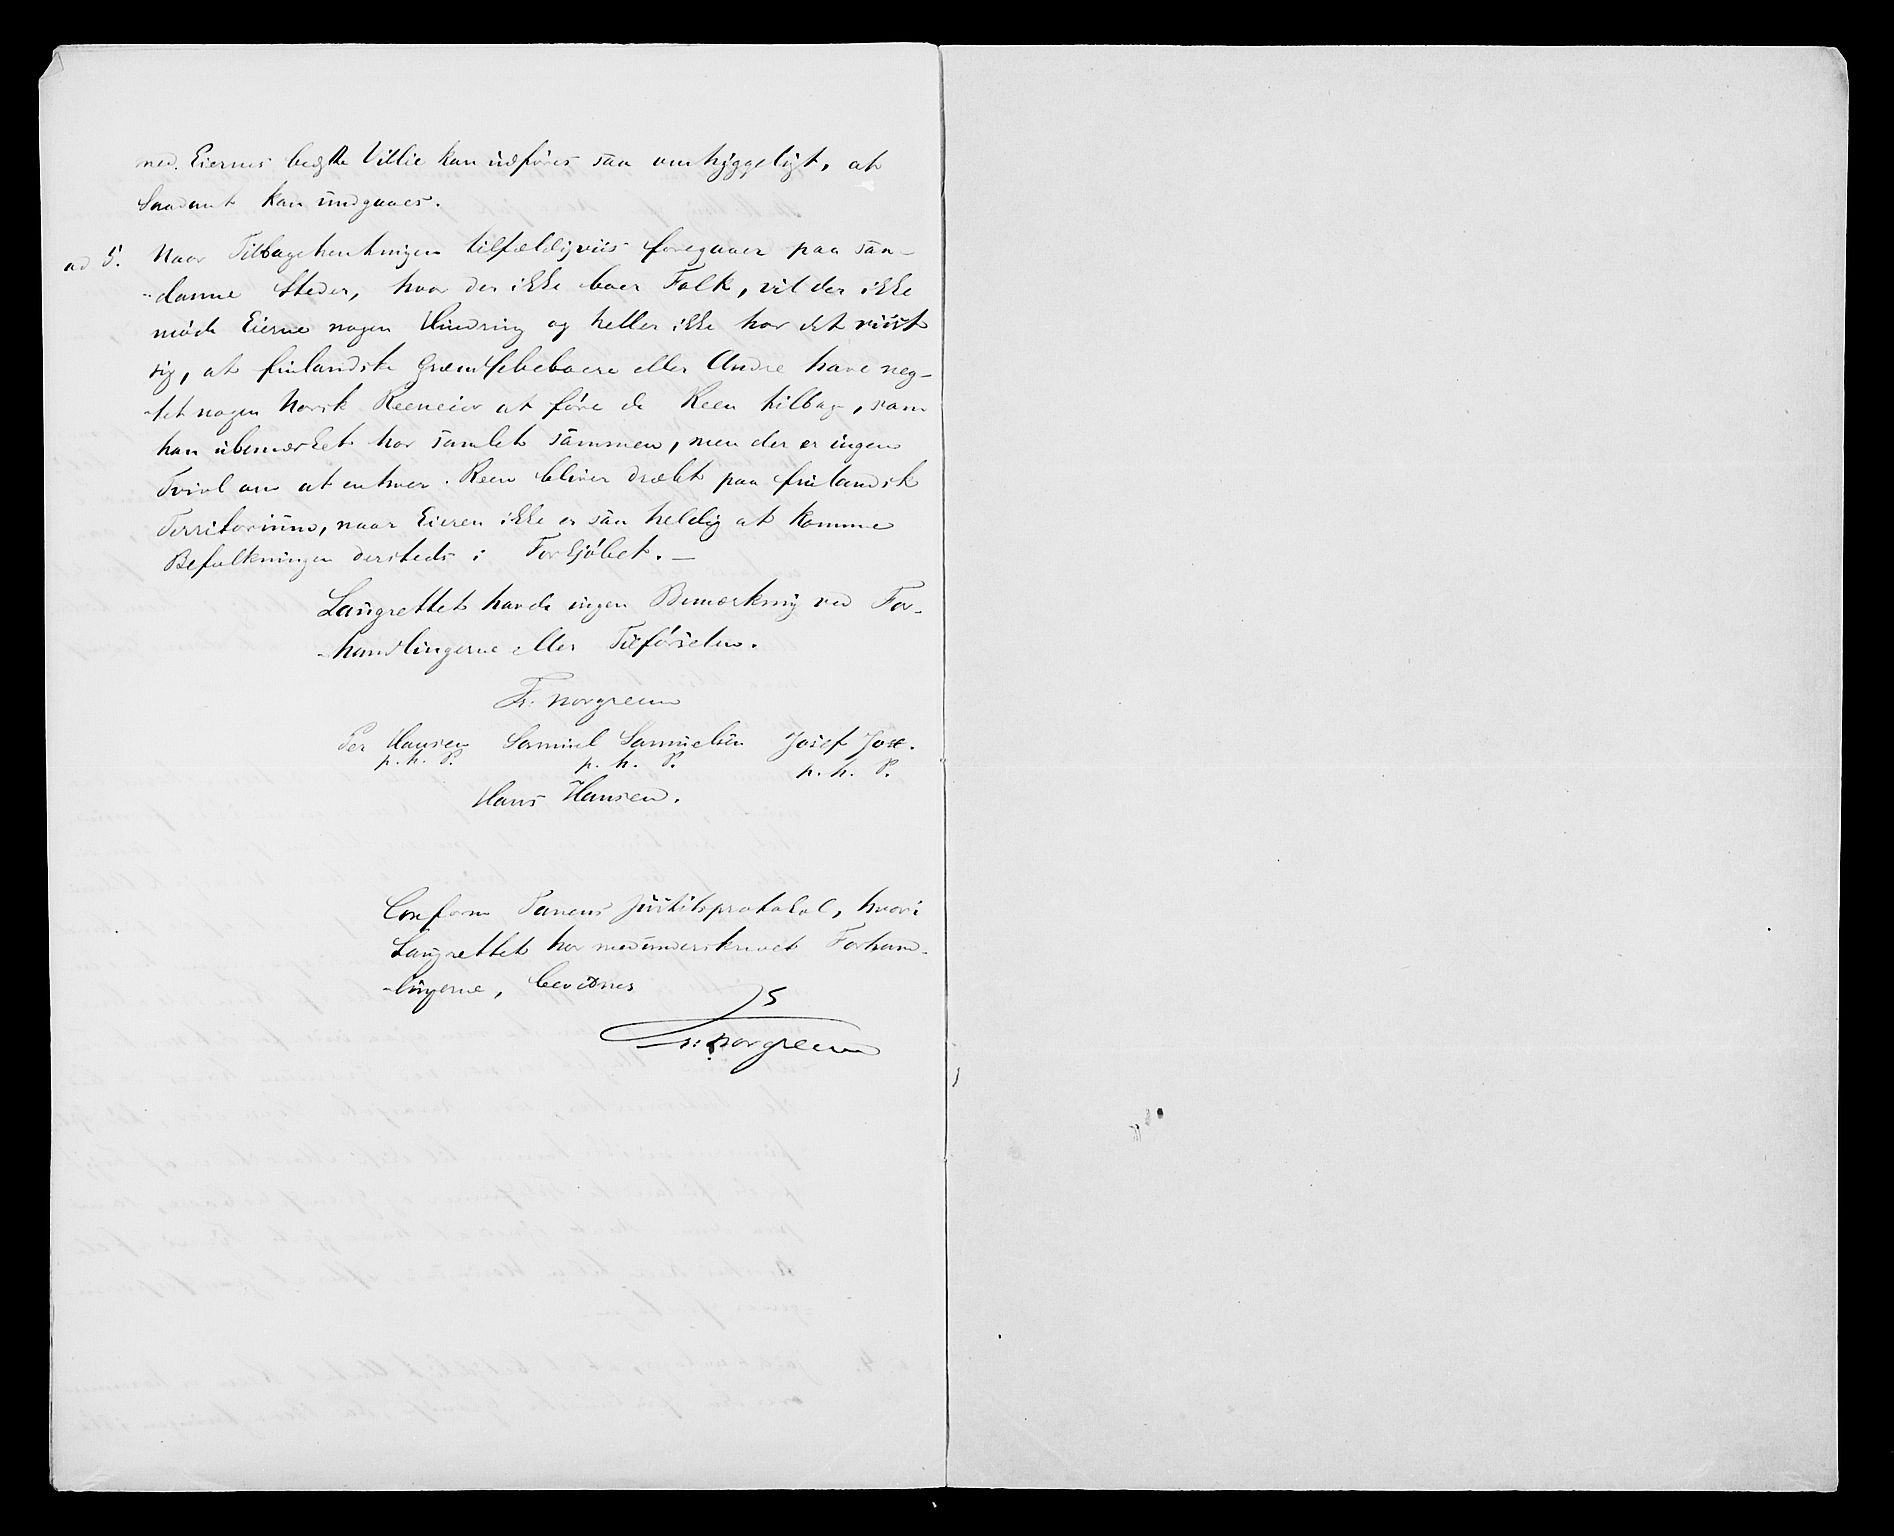 med Eiernes bedste Villie kan udføres saa omhyggeligt, at
Saadant kan undgaaes.
ad 5. Naar Tilbagehentningen tilfældigviis foregaaer paa saa-
-danne Steder, hvor der ikke boer Folk, vil der ikke
møde Eierne nogen Hindring og heller ikke har det viist
sig, at finlandske Grændsebeboere eller Andre have neg-
-tet nogen Norsk Reeneier at føre de Reen tilbage, som
han ubemærket har samlet sammen, men der er ingen
Tvivl om at enhver Reen bliver dræbt paa finlandsk
Territorium, naar Eieren ikke er saa heldig at komme
Befolkningen dersteds i Forkjøbet. —
Laugrettet havde ingen Bemærkning ved For-
-handlingerne eller Tilførselen.
Fr. Norgreen
Per Hansen Samuel Samuelsen Josef Joss.
p. h. P. p. h. P. p. h. P.
Hans Hansen.
Conform Tanens Justitsprotokol, hvori
Laugrettet har medunderskrevet Forhand-
-lingerne, bevidnes
Fr. Norgreen